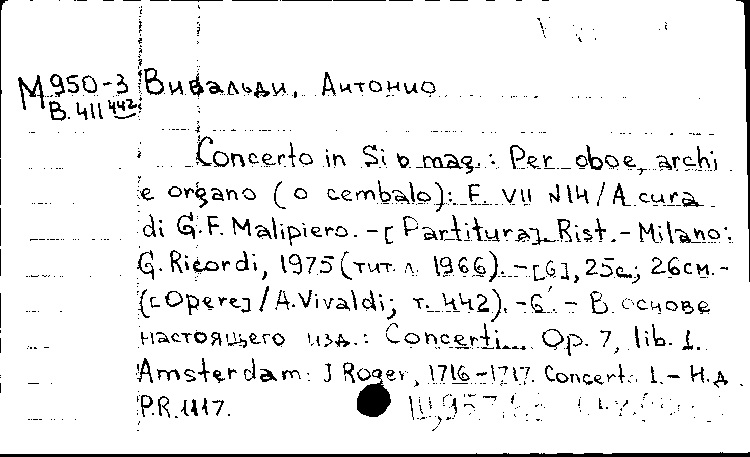 М 950-3 Вивальди, Антонио
В. 411 442
Concerto in Si b mag.: Per oboe, archi
e organo (o cembalo): F. VII N14 / A cura
di G.F. Malipiero. - [Partitura]. Rist. - Milano:
G. Ricordi, 1975 (тит. л. 1966). - [6], 25с; 26см. -
([Opere] / A. Vivaldi; т. 442). - Б. - В основе
настоящего изд.: Concerti... Op. 7, lib. 1.
Amsterdam: J Roger, 1716-1717. Concerto 1. - Н.д.
P.R. 1117.